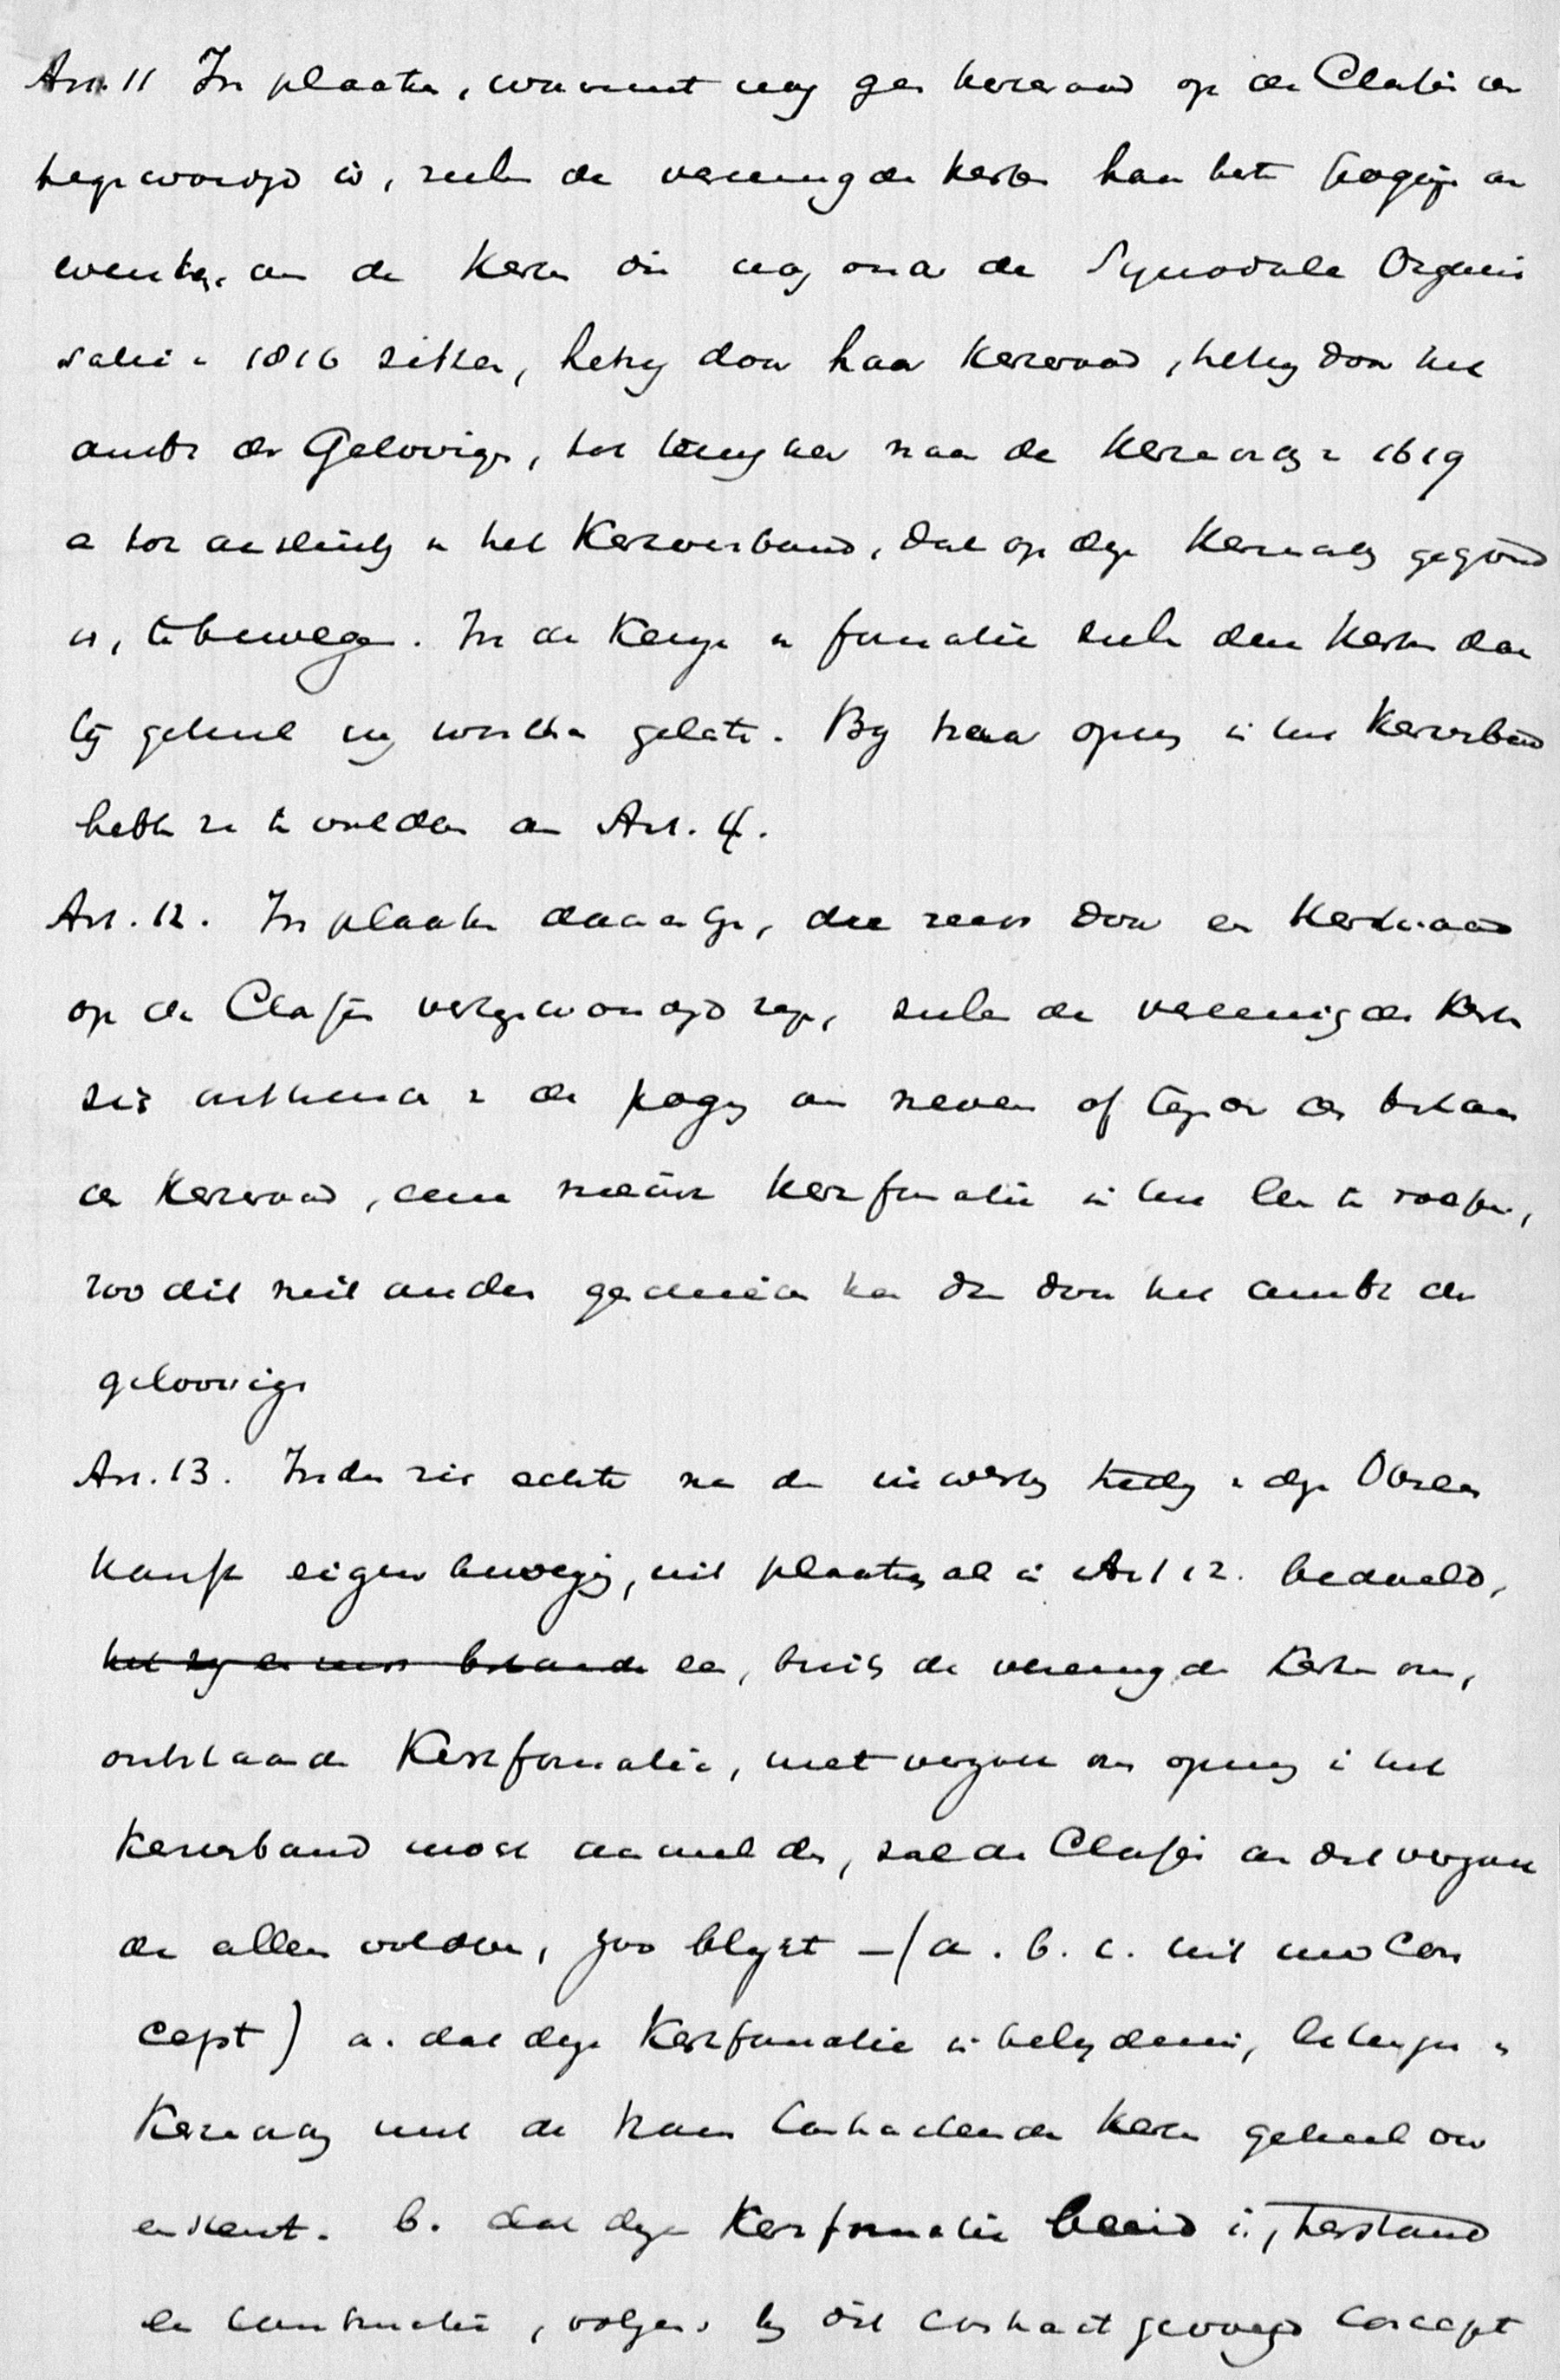 Art. 11 In plaatsen, waarvan nog geen kerkeraad op de Classis ver
tegenwoordigd is, zullen de vereenigde kerken haar beste pogingen aan
wenden, om de Kerken die nog onder de Synodale Organi
satie v. 1816 zitten, hetzij door haar kerkeraad, hetzij door het
ambt der Geloovigen, tot terugkeer naar de Kerkenordg v. 1619
en tot aansluitg in het Kerkverband, dat op deze Kerkenordg gegrond
is, te bewegen. In de Keuze v. formatie zullen deze Kerken daar
bij geheel vrij worden gelaten. Bij haar opneg in het Kerkverband
hebben ze te voldoen aan Art. 4.
Art. 12. In plaatsen daarentegen, die reeds door een Kerkeraad
op de Classis vertegenwoordigd zijn, zullen de vereenigde Kerken
zich onthouden v. de poging om neven of tegenover den bestaan
den Kerkeraad, eene nieuwe kerkformatie in het leven te roepen,
zoo dit niet anders geschieden kan dan door het ambt der
geloovigen
Art. 13. Indien zich echter na de inwerkg tredg v. deze Overeen
komst eigener beweging, uit plaatsen als in Art 12. bedoeld,
een, buiten de vereenigde Kerken om,
ontstaande Kerkformatie, met verzoek om opneg in het
Kerkverband mocht aanmelden, zal de Classis aan dat verzoek
dan alleen voldoen, zoo blijkt — (a. b. c. uit uw Con
cept) a. dat deze Kerkformatie in belijdenis, liturgie en
Kerkenordg met de haar contracteerende Kerken geheel over
eenkomt. b. dat deze Kerkformatie bereid is, bestand
en constructie, volgens bij dit contract gevoegd Concept